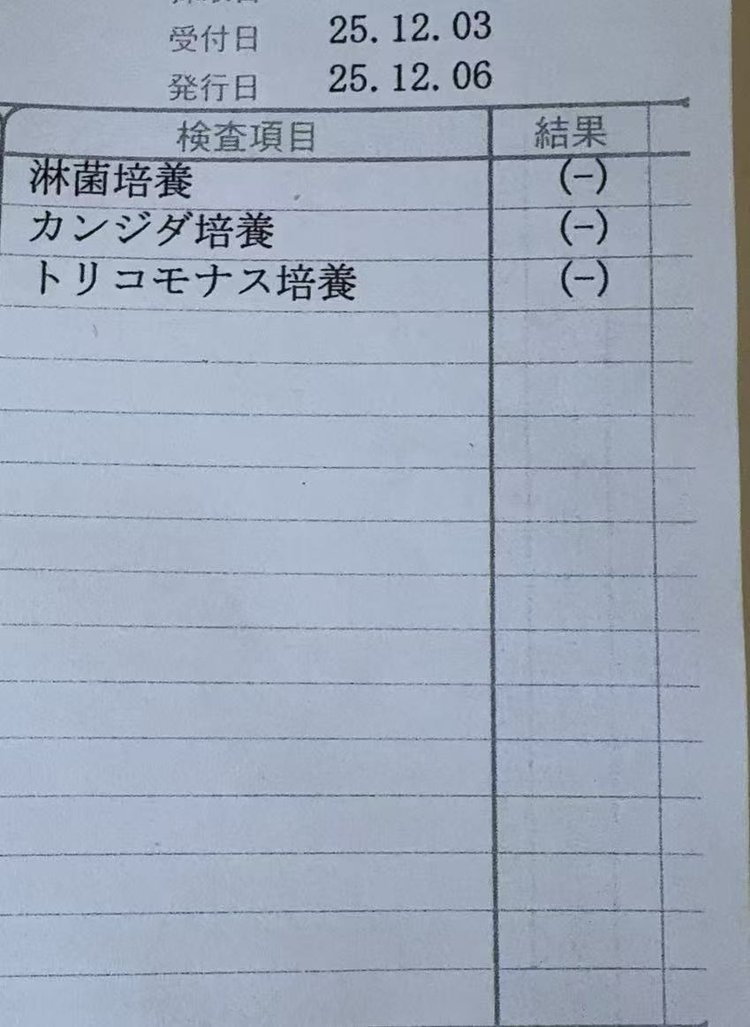 受付日 25.12.03
発行日 25.12.06
検査項目 結果
淋菌培養 (-)
カンジダ培養 (-)
トリコモナス培養 (-)